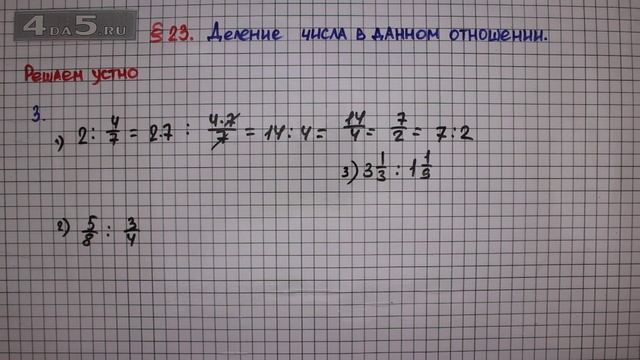 4DA5.RU
§ 23. Деление числа в данном отношении.
Решаем устно
3.
1) 2 : 4/7 = 2·7 : 4·7/7 = 14 : 4 = 14/4 = 7/2 = 7 : 2
3) 3 1/3 : 1 1/9
2) 5/8 : 3/4